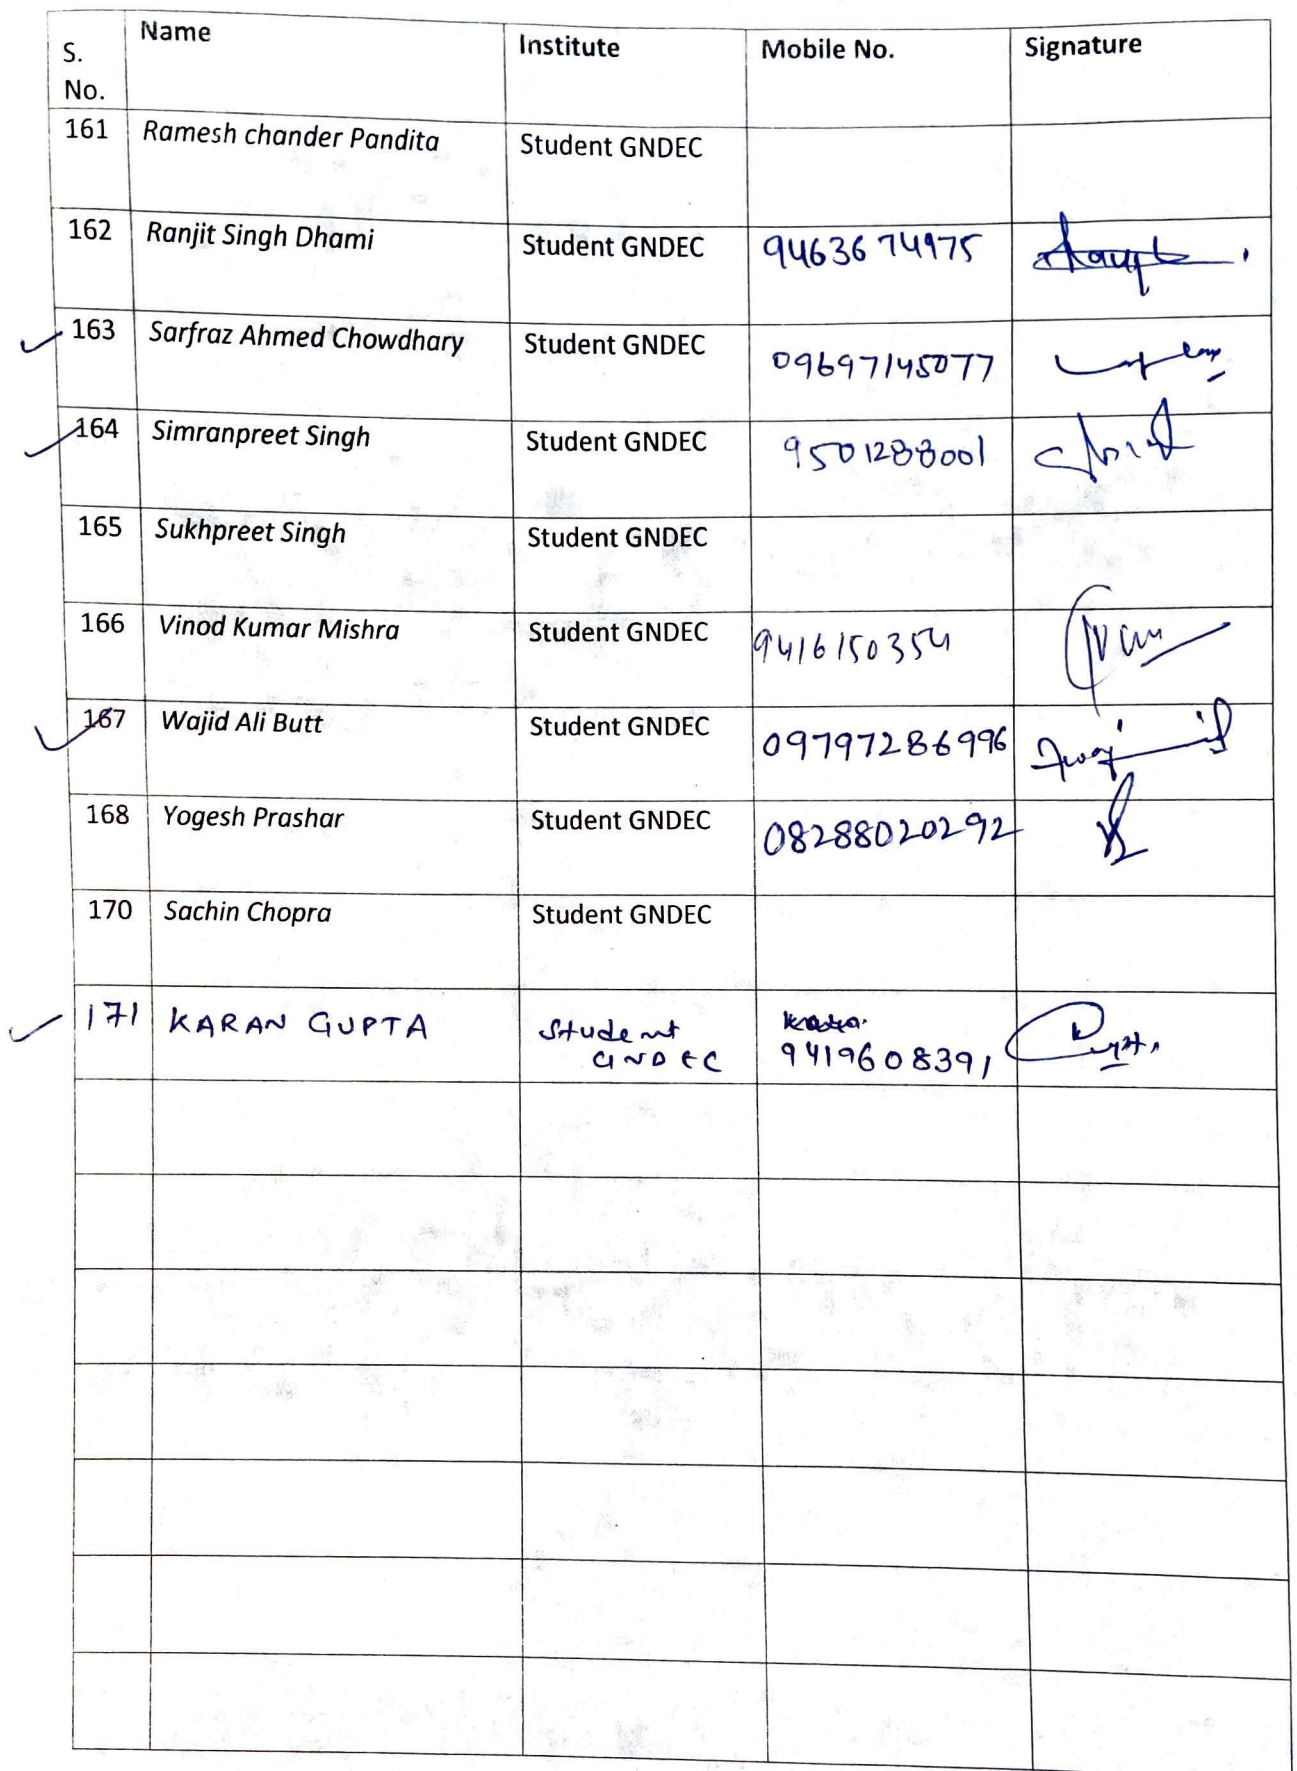 S. No. Name Institute Mobile No. Signature
161 Ramesh chander Pandita Student GNDEC
162 Ranjit Singh Dhami Student GNDEC 9463674975
163 Sarfraz Ahmed Chowdhary Student GNDEC 09697145077
164 Simranpreet Singh Student GNDEC 9501288001
165 Sukhpreet Singh Student GNDEC
166 Vinod Kumar Mishra Student GNDEC 9416150354
167 Wajid Ali Butt Student GNDEC 09797286996
168 Yogesh Prashar Student GNDEC 08288020292
170 Sachin Chopra Student GNDEC
171 KARAN GUPTA Student GNDEC 9419608391